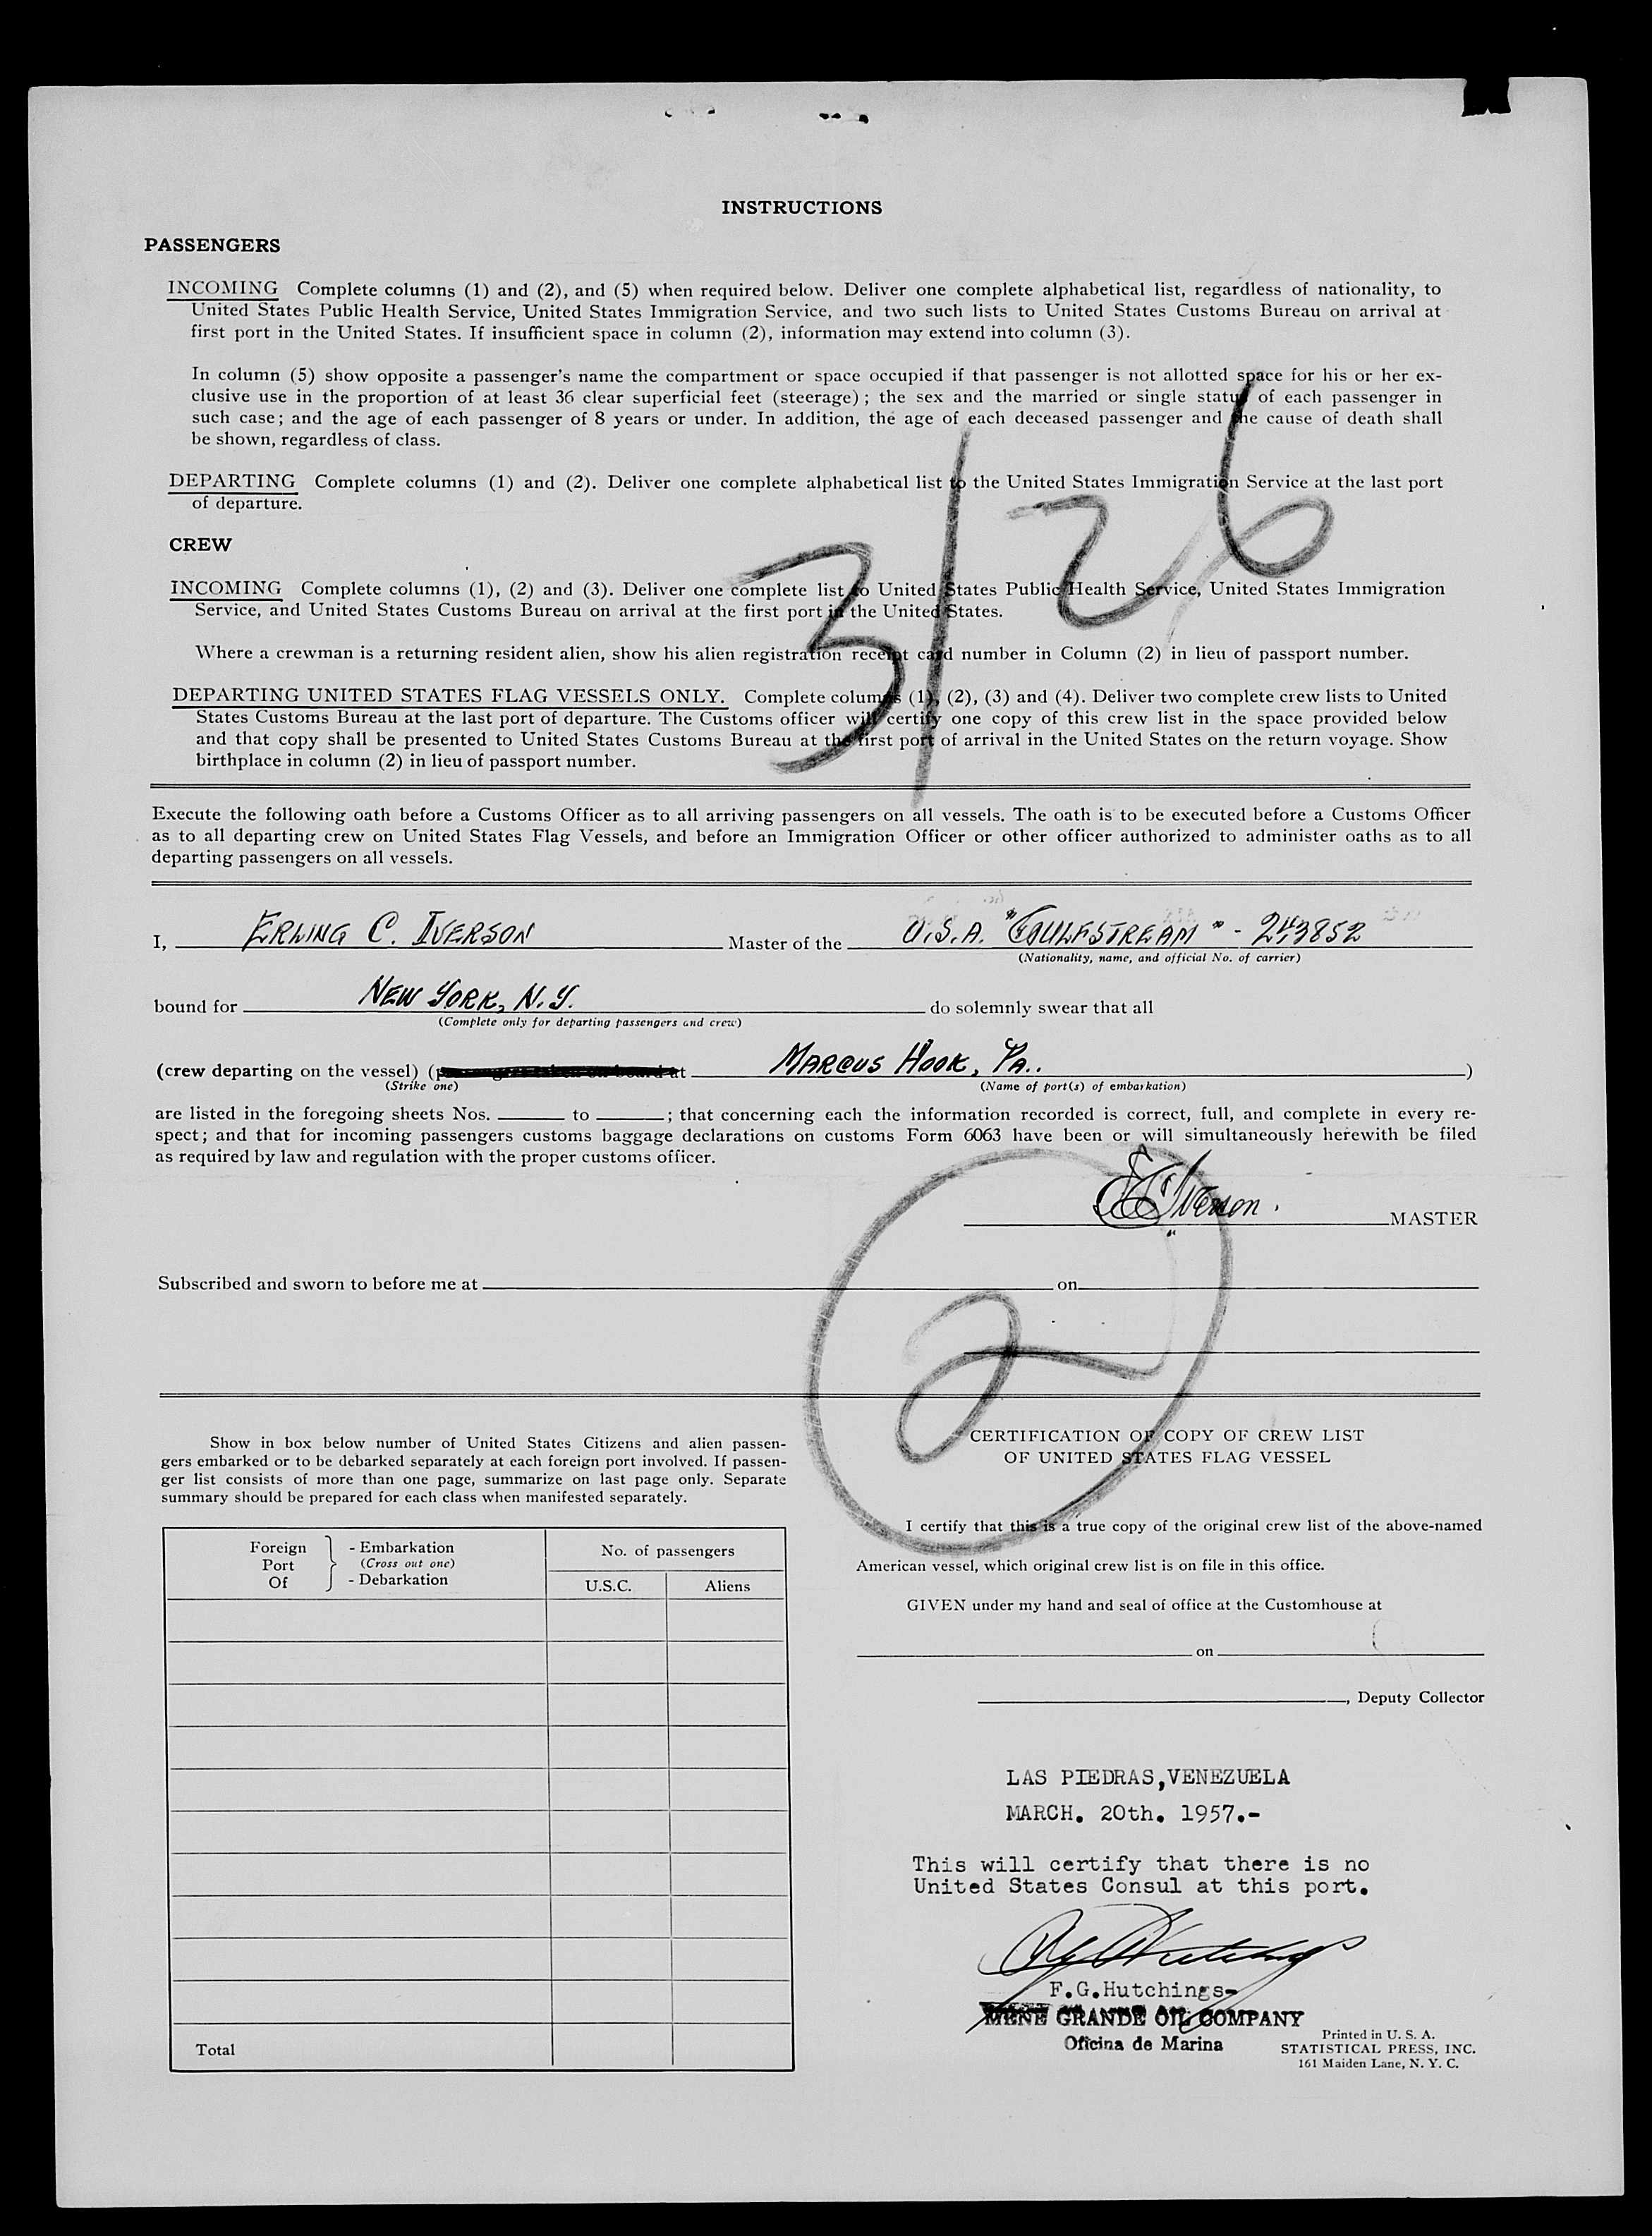 INSTRUCTIONS
PASSENGERS
INCOMING Complete columns (1) and (2), and (5) when required below. Deliver one complete alphabetical list, regardless of nationality, to
United States Public Health Service, United States Immigration Service, and two such lists to United States Customs Bureau on arrival at
first port in the United States. If insufficient space in column (2), information may extend into column (3).
In column (5) show opposite a passenger's name the compartment or space occupied if that passenger is not allotted space for his or her ex-
clusive use in the proportion of at least 36 clear superficial feet (steerage); the sex and the married or single status of each passenger in
such case; and the age of each passenger of 8 years or under. In addition, the age of each deceased passenger and the cause of death shall
be shown, regardless of class.
DEPARTING Complete columns (1) and (2). Deliver one complete alphabetical list to the United States Immigration Service at the last port
of departure.
3/26
CREW
INCOMING Complete columns (1), (2) and (3). Deliver one complete list to United States Public Health Service, United States Immigration
Service, and United States Customs Bureau on arrival at the first port in the United States.
Where a crewman is a returning resident alien, show his alien registration receipt card number in Column (2) in lieu of passport number.
DEPARTING UNITED STATES FLAG VESSELS ONLY. Complete columns (1), (2), (3) and (4). Deliver two complete crew lists to United
States Customs Bureau at the last port of departure. The Customs officer will certify one copy of this crew list in the space provided below
and that copy shall be presented to United States Customs Bureau at the first port of arrival in the United States on the return voyage. Show
birthplace in column (2) in lieu of passport number.
Execute the following oath before a Customs Officer as to all arriving passengers on all vessels. The oath is to be executed before a Customs Officer
as to all departing crew on United States Flag Vessels, and before an Immigration Officer or other officer authorized to administer oaths as to all
departing passengers on all vessels.
I, ERLING C. IVERSON Master of the U.S.A. "GULFSTREAM" - 243852
(Nationality, name, and official No. of carrier)
bound for NEW YORK, N.Y. do solemnly swear that all
(Complete only for departing passengers and crew)
(crew departing on the vessel) (passengers taken on board at MARCUS HOOK, PA.. )
(Strike one) (Name of port(s) of embarkation)
are listed in the foregoing sheets Nos. to ; that concerning each the information recorded is correct, full, and complete in every re-
spect; and that for incoming passengers customs baggage declarations on customs Form 6063 have been or will simultaneously herewith be filed
as required by law and regulation with the proper customs officer.
E C Iverson. MASTER
Subscribed and sworn to before me at on
2
Show in box below number of United States Citizens and alien passen-
gers embarked or to be debarked separately at each foreign port involved. If passen-
ger list consists of more than one page, summarize on last page only. Separate
summary should be prepared for each class when manifested separately.
Foreign Port Of - Embarkation
(Cross out one)
- Debarkation
No. of passengers
U.S.C. Aliens
Total
CERTIFICATION OF COPY OF CREW LIST
OF UNITED STATES FLAG VESSEL
I certify that this is a true copy of the original crew list of the above-named
American vessel, which original crew list is on file in this office.
GIVEN under my hand and seal of office at the Customhouse at
on
, Deputy Collector
LAS PIEDRAS,VENEZUELA
MARCH. 20th. 1957.-
This will certify that there is no
United States Consul at this port.
F.G.Hutchings-
MENE GRANDE OIL COMPANY
Oficina de Marina
Printed in U. S. A.
STATISTICAL PRESS, INC.
161 Maiden Lane, N. Y. C.